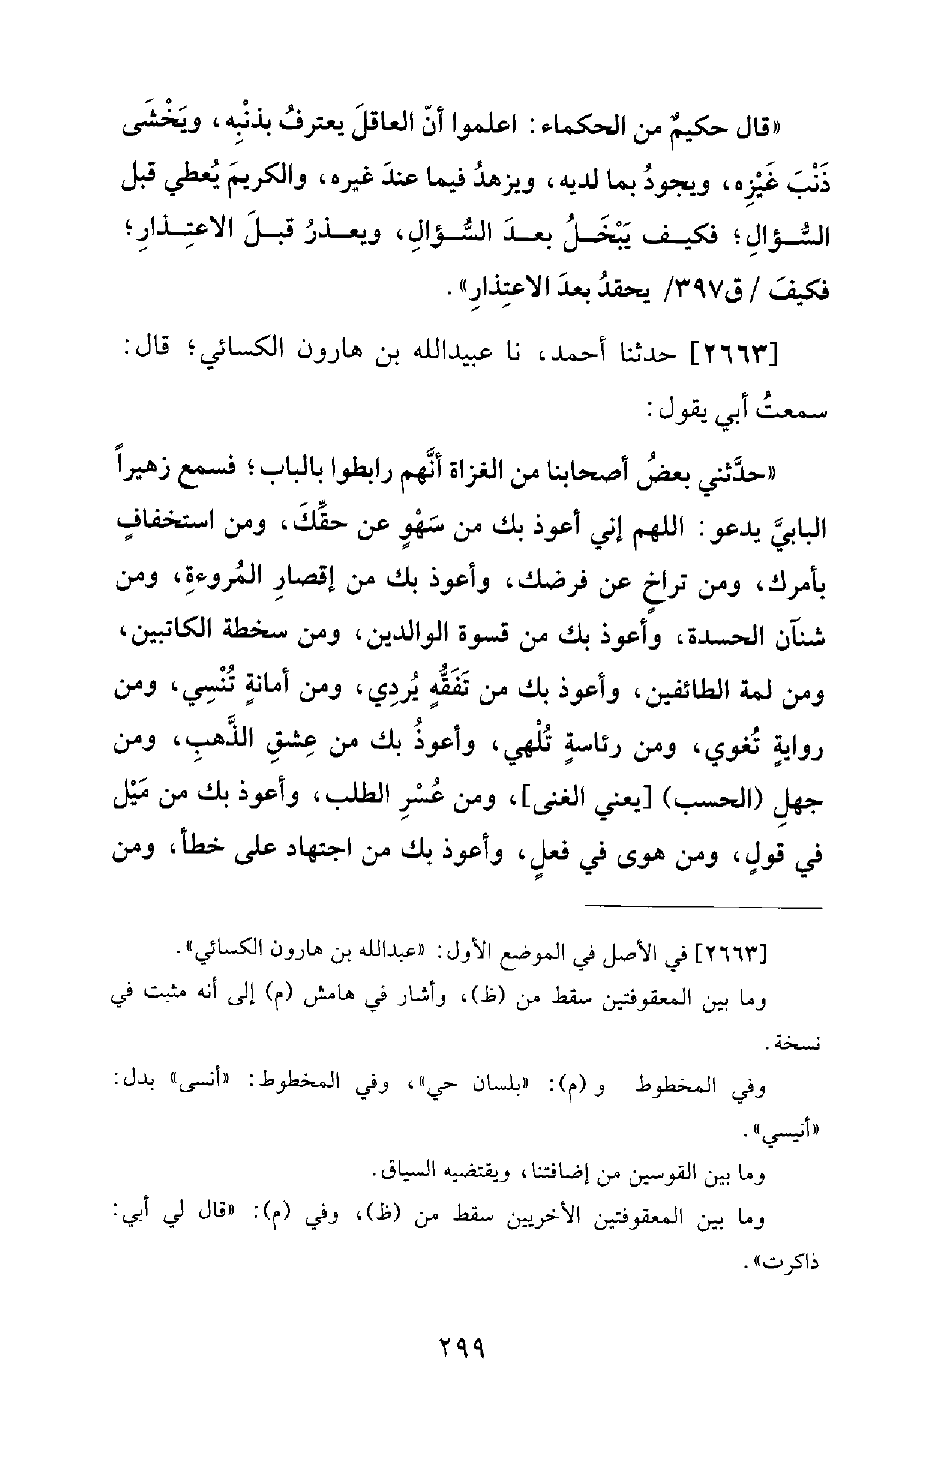 «قال حكيمٌ من الحكماء: اعلموا أنّ العاقلَ يعترفُ بذنْبِه، ويَخْشَى
ذَنْبَ غَيْرِه، ويجودُ بما لديه، ويزهدُ فيما عندَ غيره، والكريمَ يُعطي قبل
السُّؤالِ؛ فكيف يَبْخَلُ بعدَ السُّؤالِ، ويعذرُ قبلَ الاعتِذارِ؛
فكيفَ /ق٣٩٧/ يحقدُ بعدَ الاعتِذارِ».
[٢٦٦٣] حدثنا أحمد، نا عبيدالله بن هارون الكسائي؛ قال:
سمعتُ أبي يقول:
«حدَّثني بعضُ أصحابنا من الغزاة أنَّهم رابطوا بالباب؛ فسمع زهيراً
البابيَّ يدعو: اللهم إني أعوذ بك من سَهْوٍ عن حقِّكَ، ومن استخفافٍ
بأمرك، ومن تراخٍ عن فرضك، وأعوذ بك من إقصارِ المُروءةِ، ومن
شنآن الحسدة، وأعوذ بك من قسوة الوالدين، ومن سخطة الكاتبين،
ومن لمة الطائفين، وأعوذ بك من تَفَقُّهٍ يُردِي، ومن أمانةٍ تُنْسِي، ومن
روايةٍ تُغوي، ومن رئاسةٍ تُلْهي، وأعوذُ بك من عِشقِ الذَّهبِ، ومن
جهلِ (الحسب) [يعني الغنى]، ومن عُسْرِ الطلب، وأعوذ بك من مَيْل
في قولٍ، ومن هوى في فعلٍ، وأعوذ بك من اجتهاد على خطأ، ومن
[٢٦٦٣] في الأصل في الموضع الأول: «عبدالله بن هارون الكسائي».
وما بين المعقوفتين سقط من (ظ)، وأشار في هامش (م) إلى أنه مثبت في
نسخة.
وفي المخطوط و (م): «بلسان حي»، وفي المخطوط: «أنسى» بدل:
«أنيسي».
وما بين القوسين من إضافتنا، ويقتضيه السياق.
وما بين المعقوفتين الأخريين سقط من (ظ)، وفي (م): «قال لي أبي:
ذاكرت».
٢٩٩